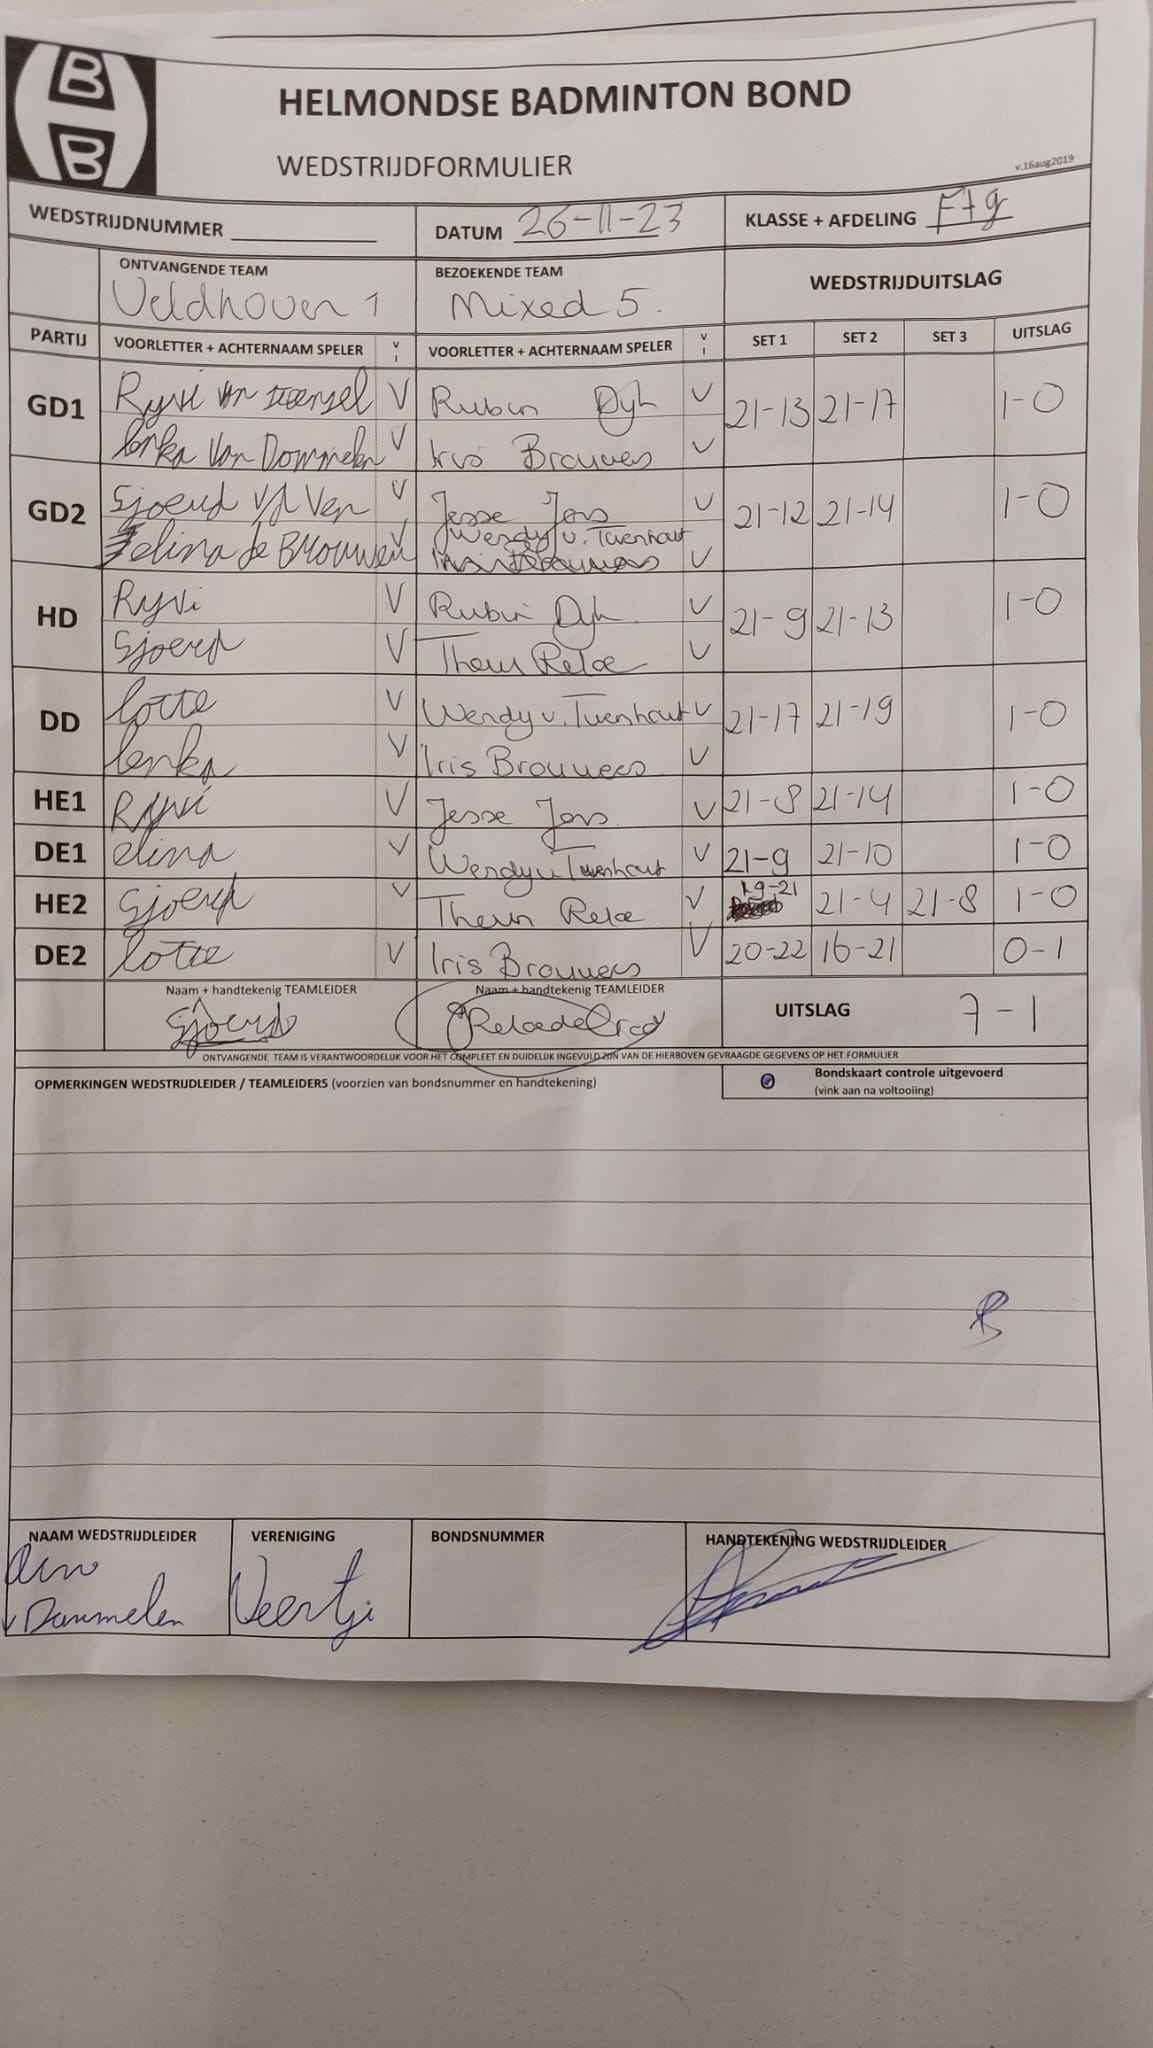 B
B
HELMONDSE BADMINTON BOND
WEDSTRIJDFORMULIER
v.16aug2019
WEDSTRIJDNUMMER DATUM 26-11-23 KLASSE + AFDELING
ONTVANGENDE TEAM BEZOEKENDE TEAM WEDSTRIJDUITSLAG
Veldhoven 1 Mixed 5.
PARTIJ VOORLETTER + ACHTERNAAM SPELER V I VOORLETTER + ACHTERNAAM SPELER V I SET 1 SET 2 SET 3 UITSLAG
GD1 Ryvi V Rubin Dyk V 21-13 21-17 1-0
lenka Van Dommelen V Iris Brouwers V
GD2 Sjoerd v/d Ven V Jesse Jors V 21-12 21-14 1-0
elina de Brouwer V Wendy v. Turenhout V
HD Ryvi V Rubin Dyk V 21-9 21-13 1-0
Sjoerd V Theun Reloe V
DD lotte V Wendy v. Turenhout V 21-17 21-19 1-0
lenka V Iris Brouwers V
HE1 Ryvi V Jesse Jors V 21-8 21-14 1-0
DE1 elina V Wendy v Turenhout V 21-9 21-10 1-0
HE2 Sjoerd V Theun Reloe V 19-21 21-4 21-8 1-0
DE2 lotte V Iris Brouwers V 20-22 16-21 0-1
Naam + handtekenig TEAMLEIDER Naam + handtekenig TEAMLEIDER UITSLAG 7-1
Sjoerd
ONTVANGENDE TEAM IS VERANTWOORDELIJK VOOR HET COMPLEET EN DUIDELIJK INGEVULD ZIJN VAN DE HIERBOVEN GEVRAAGDE GEGEVENS OP HET FORMULIER
OPMERKINGEN WEDSTRIJDLEIDER / TEAMLEIDERS (voorzien van bondsnummer en handtekening) Bondskaart controle uitgevoerd
(vink aan na voltooiing)
NAAM WEDSTRIJDLEIDER VERENIGING BONDSNUMMER HANDTEKENING WEDSTRIJDLEIDER
v Dommelen Veertji